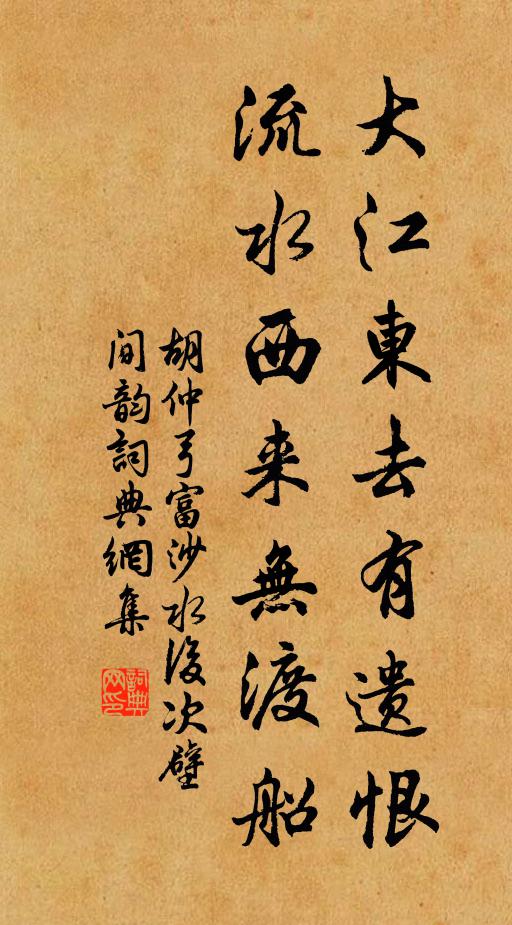 大江東去有遗恨
流水西来無渡船
胡仲弓富沙水後次壁
间韵詞典網集
詞典
网印